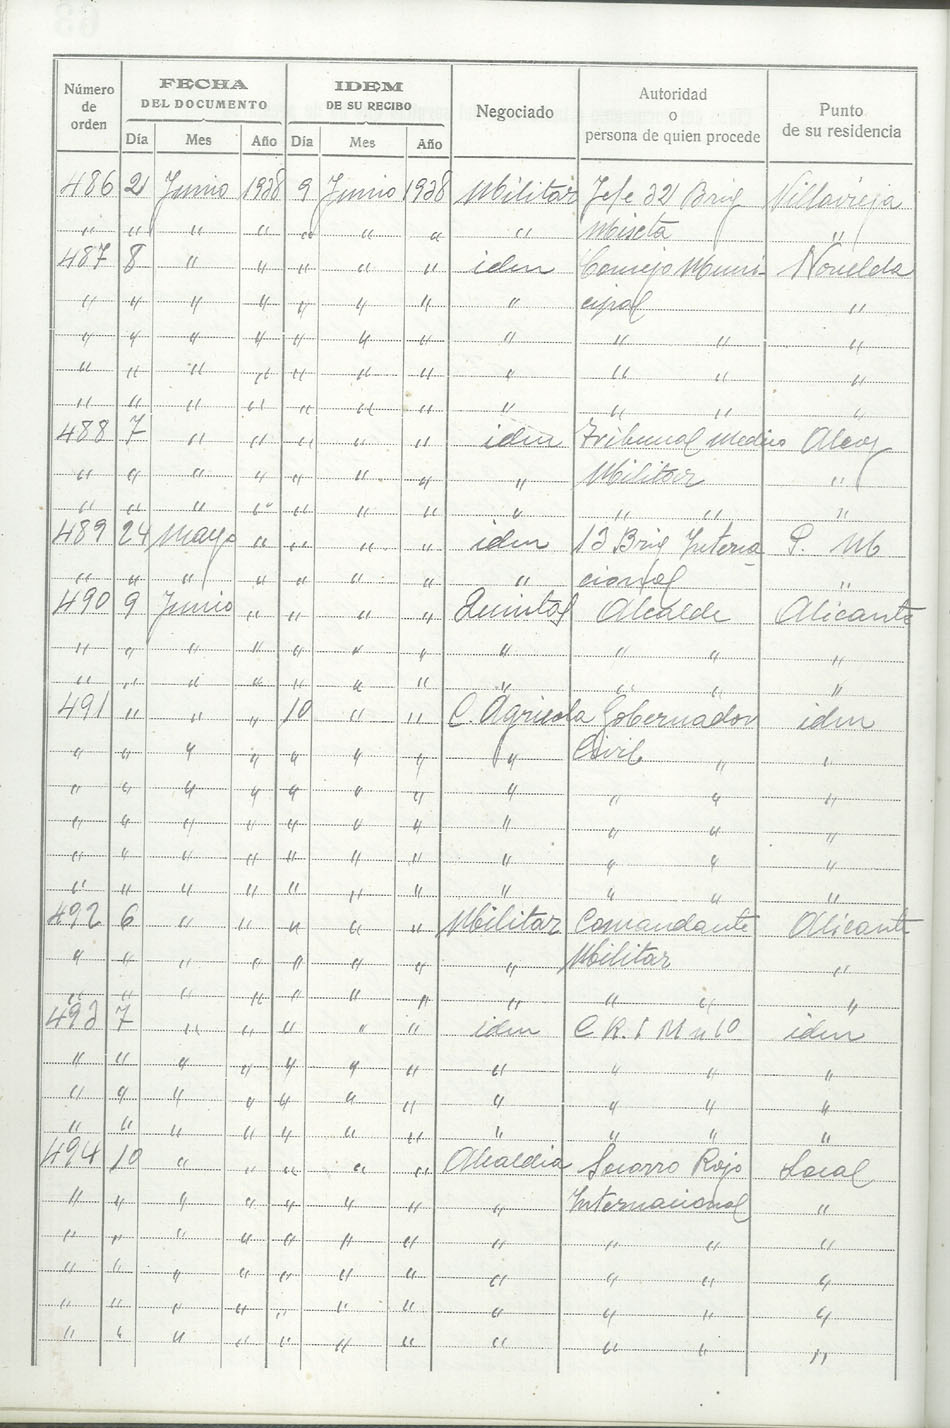 Número de orden | FECHA DEL DOCUMENTO | IDEM DE SU RECIBO | Negociado | Autoridad o persona de quien procede | Punto de su residencia
Día | Mes | Año | Día | Mes | Año
486 | 21 | Junio | 1938 | 9 | Junio | 1938 | Militar | Jefe 32 Brig | Villavieja
" | " | " | " | " | " | " | " | Mixta | "
487 | 8 | " | " | " | " | " | idm | Consejo Muni- | Novelda
" | " | " | " | " | " | " | " | cipal | "
" | " | " | " | " | " | " | " | " " | "
" | " | " | " | " | " | " | " | " " | "
" | " | " | " | " | " | " | " | " " | "
488 | 7 | " | " | " | " | " | idm | Tribunal Medico | Alcoy
" | " | " | " | " | " | " | " | Militar | "
" | " | " | " | " | " | " | " | " " | "
489 | 24 | Mayo | " | " | " | " | idm | 13 Brig Interna | P. M
" | " | " | " | " | " | " | " | cional | "
490 | 9 | Junio | " | " | " | " | Quintas | Alcalde | Alicante
" | " | " | " | " | " | " | " | " " | "
" | " | " | " | " | " | " | " | " " | "
491 | " | " | " | 10 | " | " | C. Agricola | Gobernador | idm
" | " | " | " | " | " | " | " | Civil " | "
" | " | " | " | " | " | " | " | " " | "
" | " | " | " | " | " | " | " | " " | "
" | " | " | " | " | " | " | " | " " | "
" | " | " | " | " | " | " | " | " " | "
492 | 6 | " | " | " | " | " | Militar | Comandante | Alicante
" | " | " | " | " | " | " | " | Militar | "
" | " | " | " | " | " | " | " | " " | "
493 | 7 | " | " | " | " | " | idm | C R. I M n 10 | idm
" | " | " | " | " | " | " | " | " " | "
" | " | " | " | " | " | " | " | " " | "
" | " | " | " | " | " | " | " | " " | "
494 | 10 | " | " | " | " | " | Alcaldia | Socorro Rojo | Local
" | " | " | " | " | " | " | " | Internacional | "
" | " | " | " | " | " | " | " | " " | "
" | " | " | " | " | " | " | " | " " | "
" | " | " | " | " | " | " | " | " " | "
" | " | " | " | " | " | " | " | " " | "